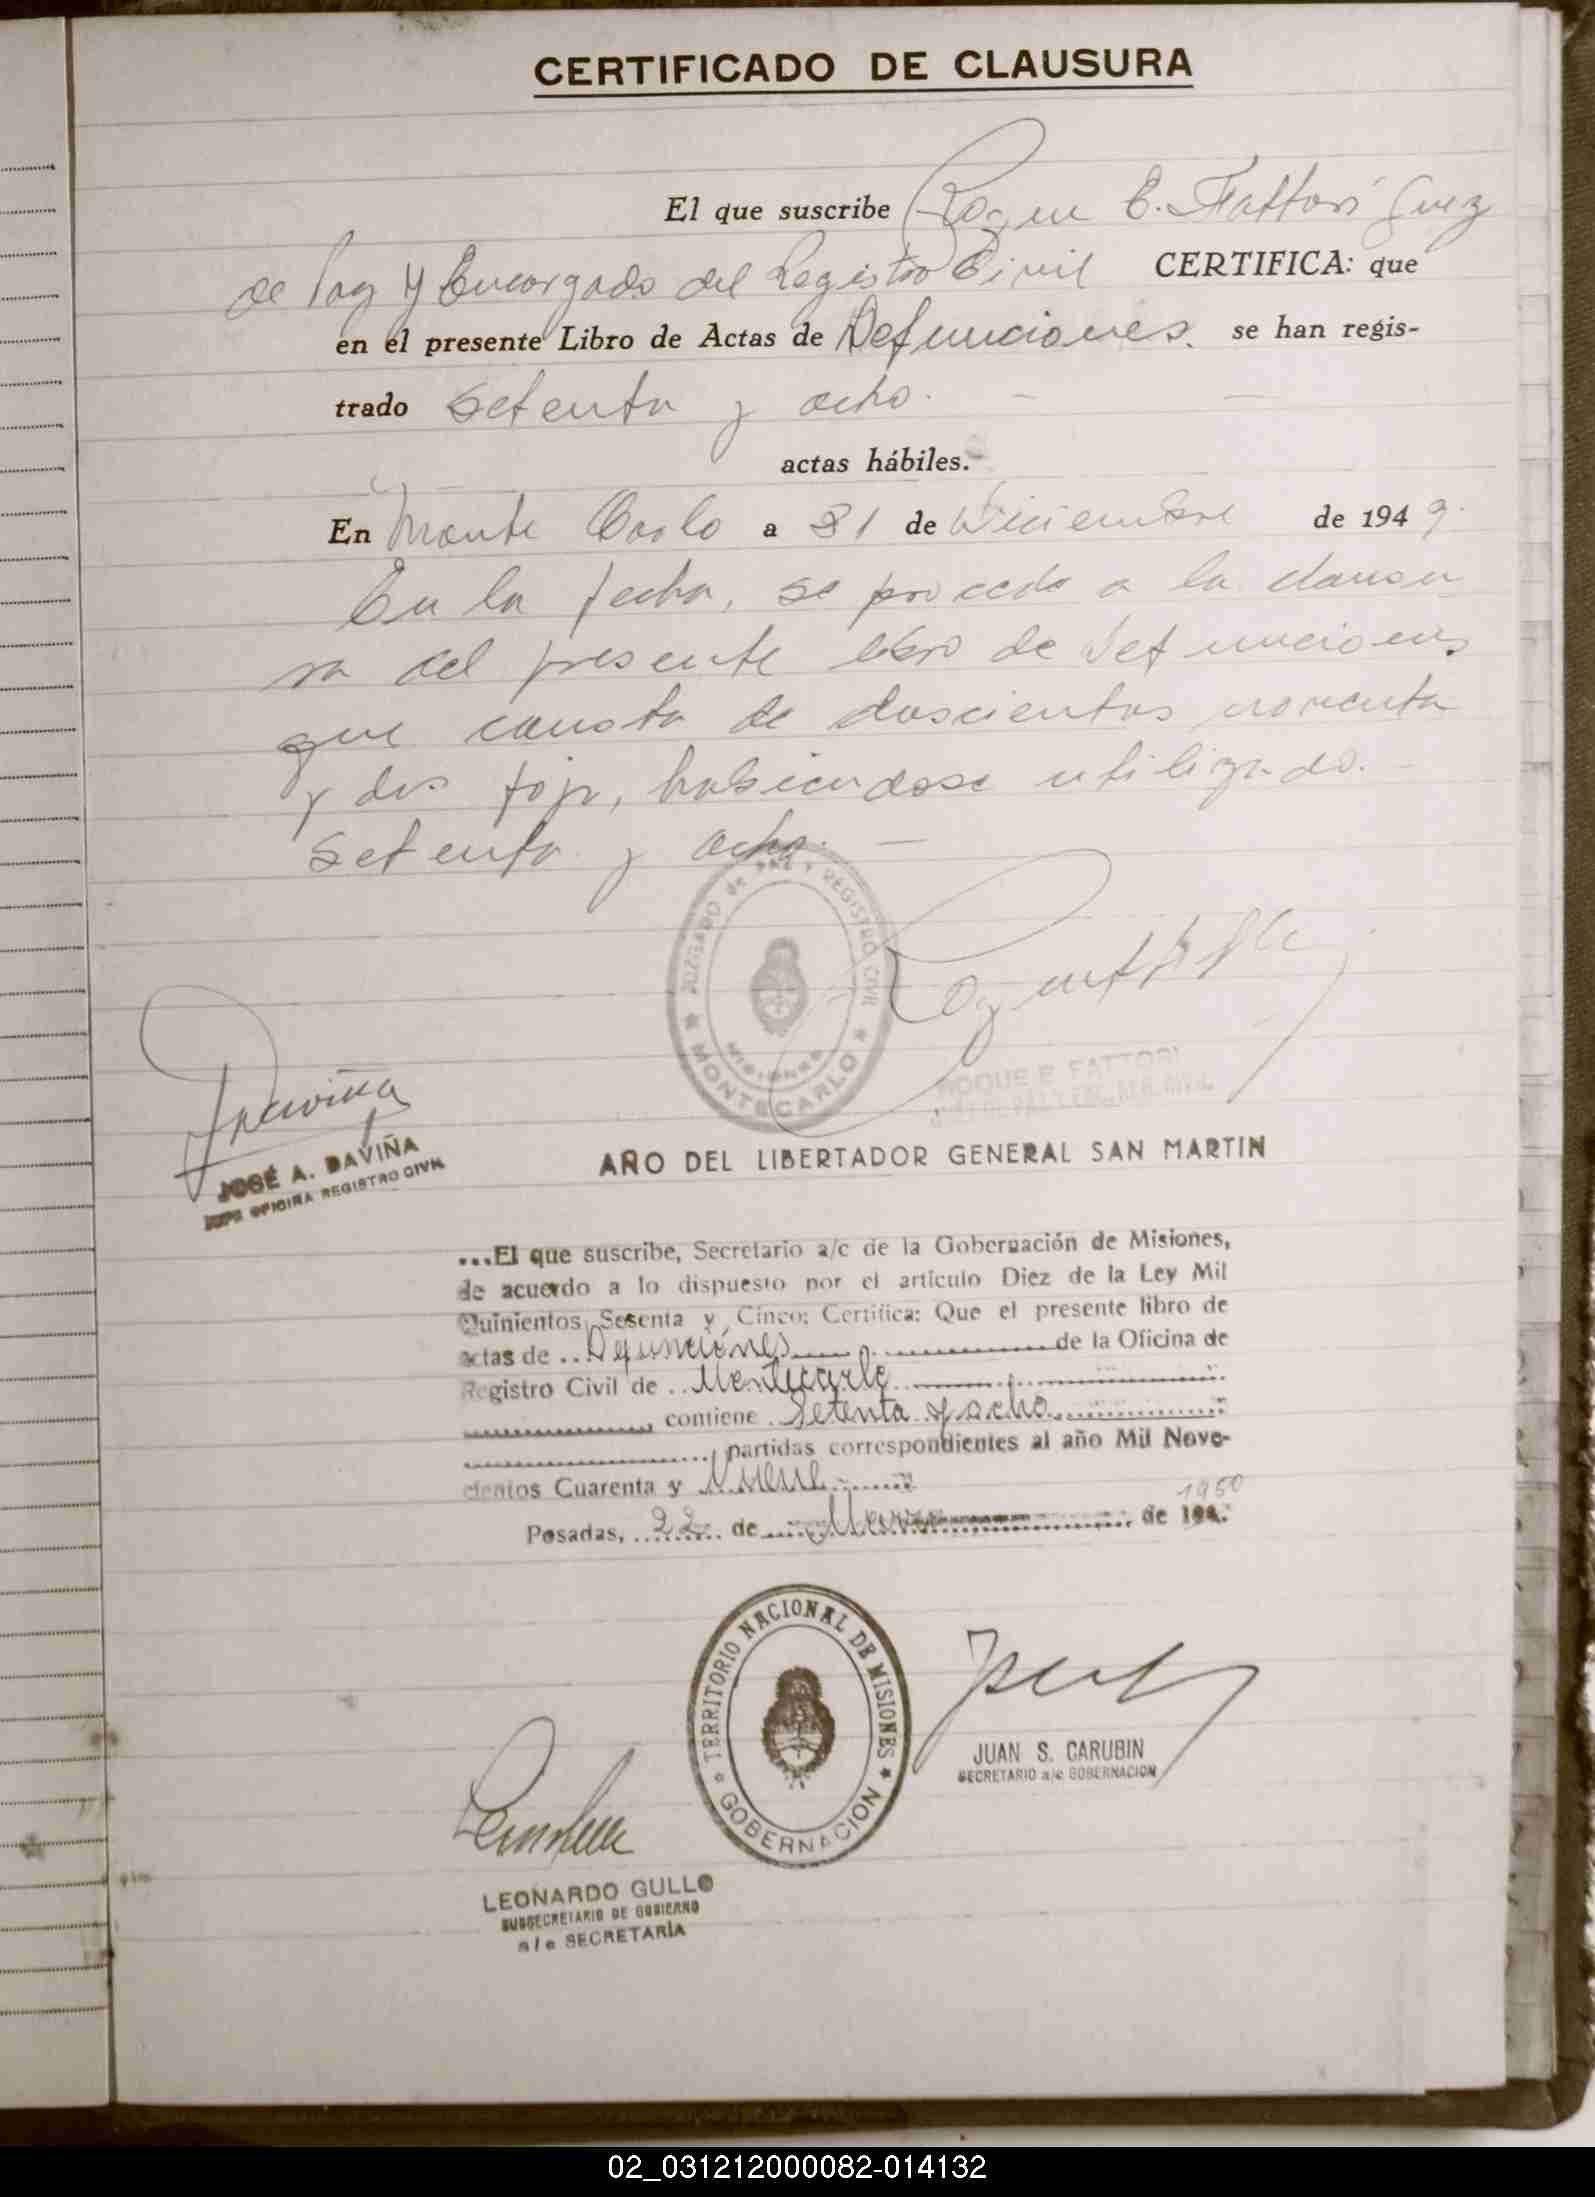 CERTIFICADO DE CLAUSURA
El que suscribe Roque E. Fattori Juez
de Paz y Encargado del Registro Civil CERTIFICA: que
en el presente Libro de Actas de Defunciones. se han regis-
trado setenta y ocho. — —
actas hábiles.
En Monte Carlo a 31 de Diciembre de 1949.
En la fecha, se procede a la clausu
ra del presente libro de Defunciones
que consta de doscientos noventa
y dos foja, habiendose utilizado. —
setenta y ocho. —
JUZGADO de PAZ Y REGISTRO CIVIL
MISIONES
★ MONTECARLO ★
ROQUE E FATTORI
Daviña
JOSÉ A. DAVIÑA
JEFE OFICINA REGISTRO CIVIL
AÑO DEL LIBERTADOR GENERAL SAN MARTIN
...El que suscribe, Secretario a/c de la Gobernación de Misiones,
de acuerdo a lo dispuesto por el artículo Diez de la Ley Mil
Quinientos Sesenta y Cinco; Certifica: Que el presente libro de
actas de .. Defunciones de la Oficina de
Registro Civil de .. Montecarlo
, contiene . Setenta y ocho
, partidas correspondientes al año Mil Nove-
cientos Cuarenta y Nueve
1950
Posadas, 22 de Marzo de 194.
★ TERRITORIO NACIONAL DE MISIONES ★
GOBERNACION
JUAN S. CARUBIN
SECRETARIO a/c GOBERNACION
LEONARDO GULLO
SUBSECRETARIO DE GOBIERNO
a/c SECRETARÍA
02_031212000082-014132